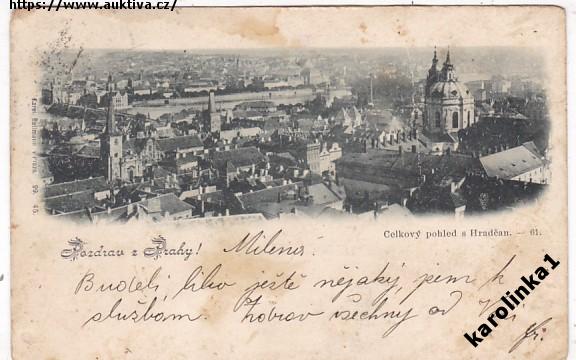 https://www.auktiva.cz/
Karel Bellmann Praha. 99. 45.
Celkový pohled s Hradčan. — 61.
Pozdrav z Prahy! Milená
Budeli libo ještě nějaký, jsem k
službám. Zdráv všechny od
karolinka1